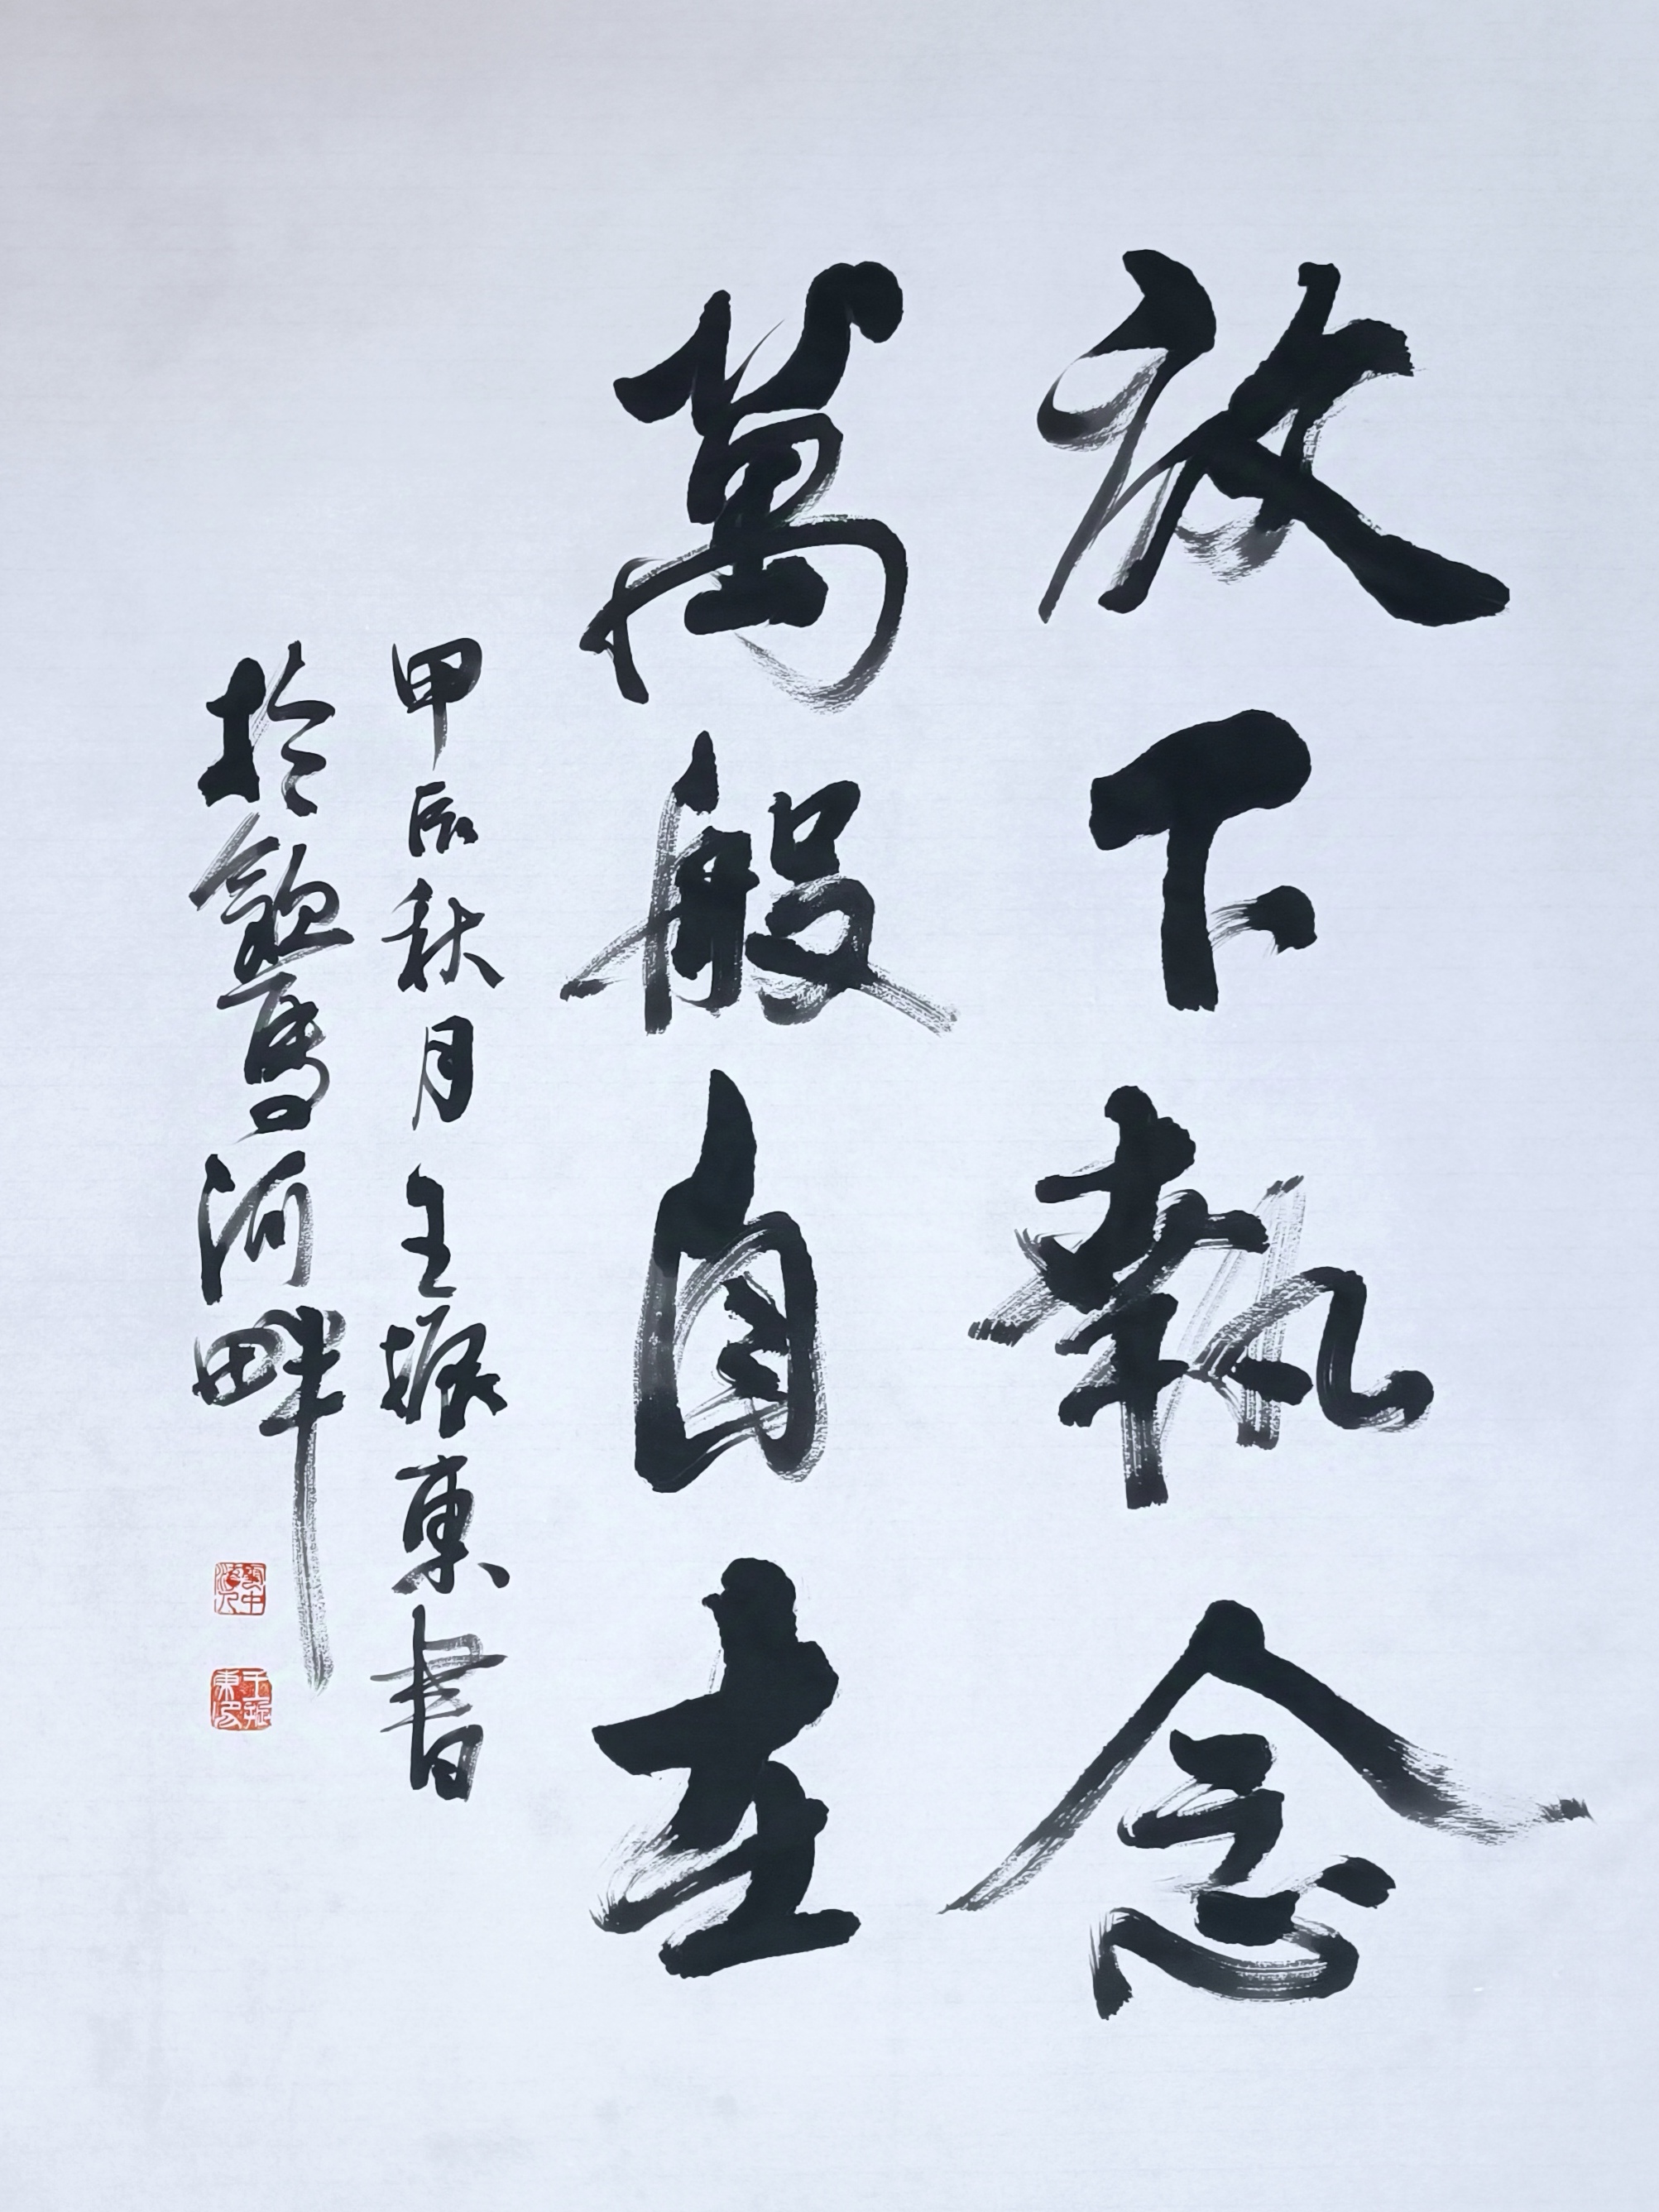 放下執念
萬般自在
甲辰秋月王振東書
於飲馬河畔
雲中
王振東印